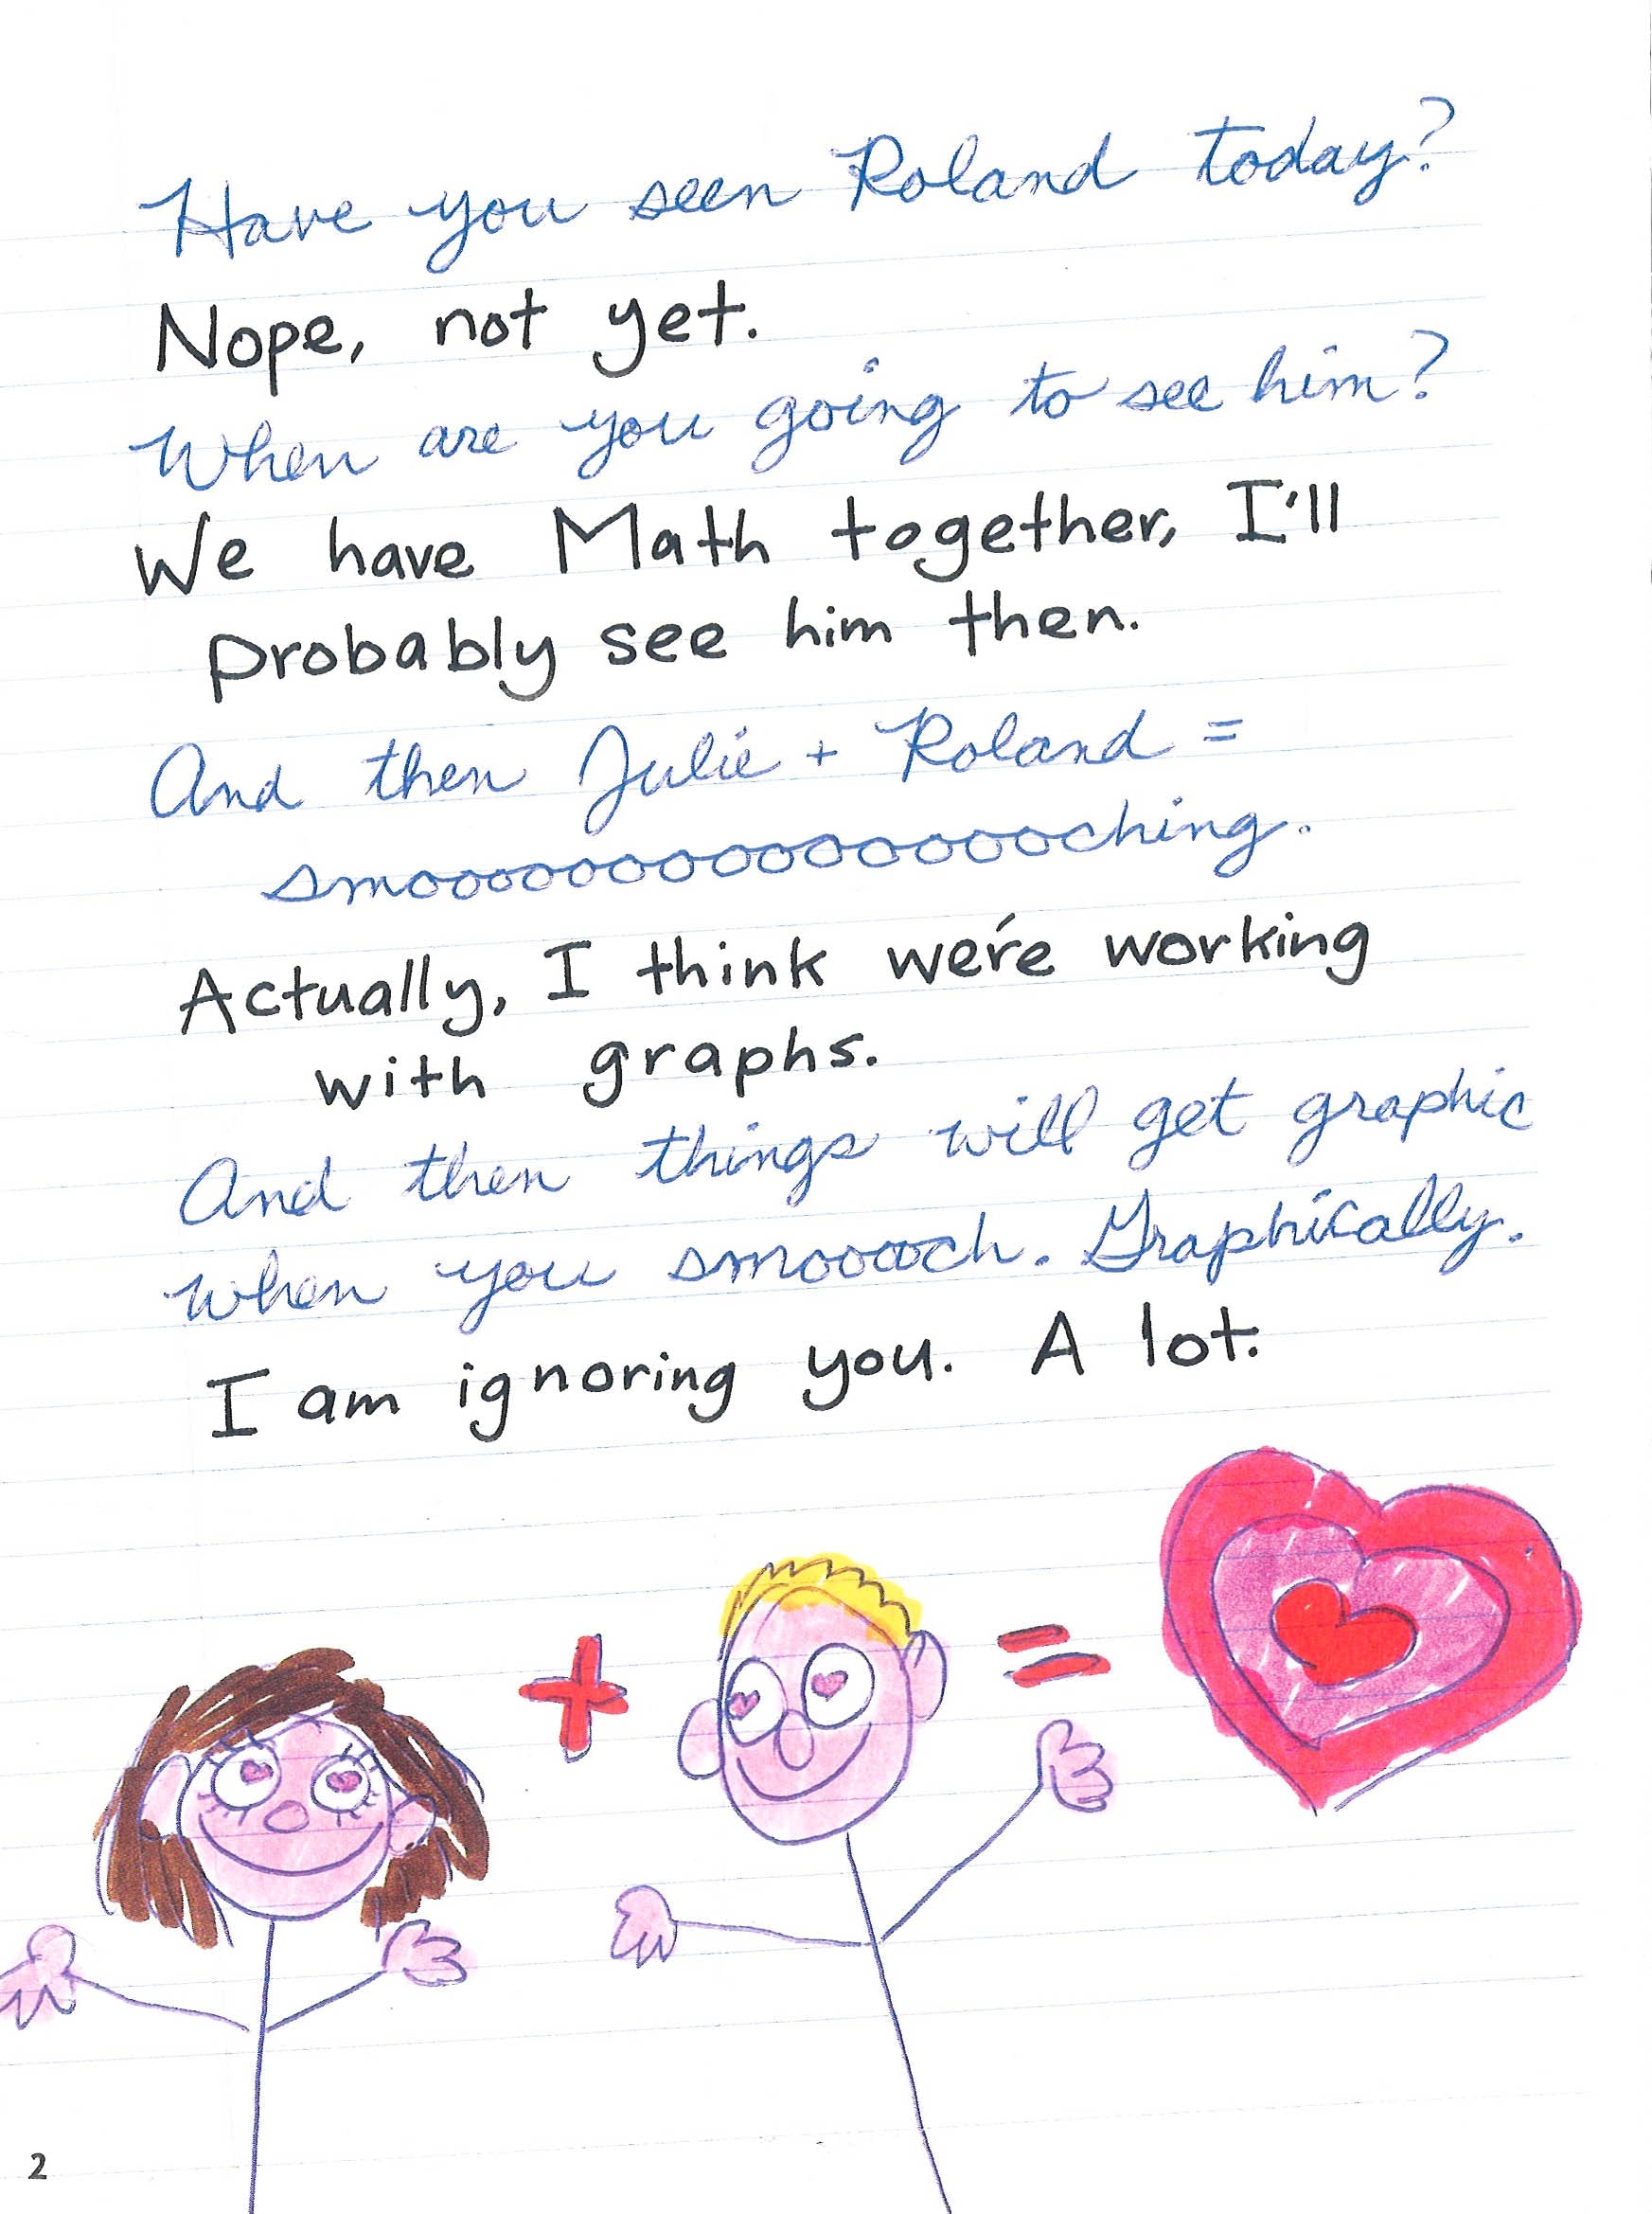 Have you seen Roland today?
Nope, not yet.
When are you going to see him?
We have Math together, I'll
probably see him then.
And then Julie + Roland =
smoooooooooooooooching.
Actually, I think we're working
with graphs.
And then things will get graphic
when you smooooch. Graphically.
I am ignoring you. A lot.
+ =
2